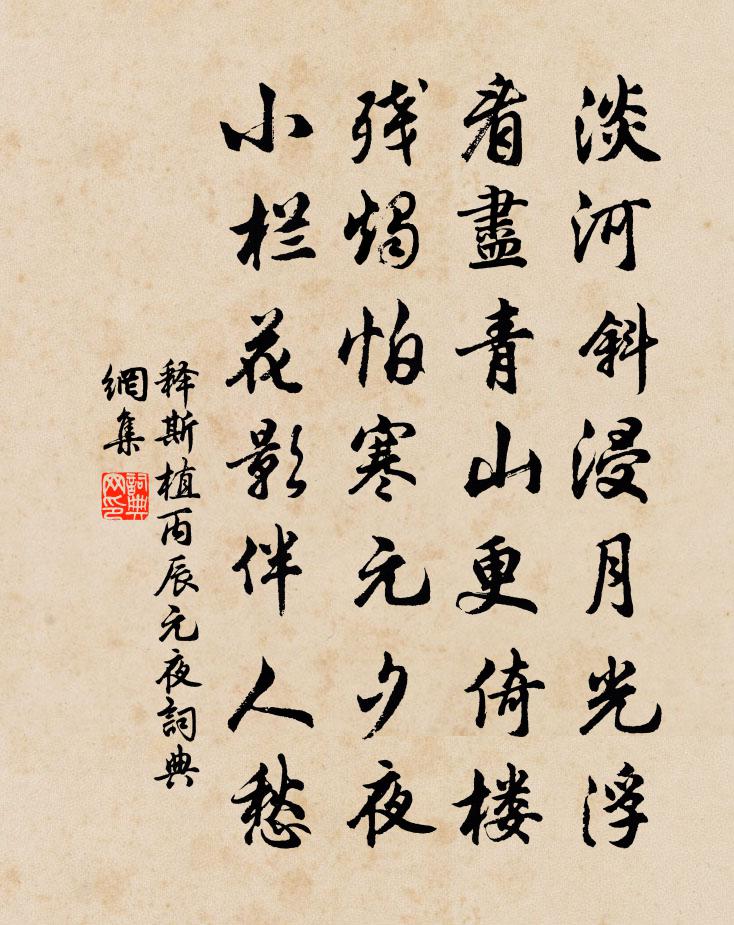 淡河斜浸月光浮
看盡青山更倚楼
残烛怕寒元夕夜
小栏花影伴人愁
释斯植丙辰元夜詞典
網集
詞典
网印